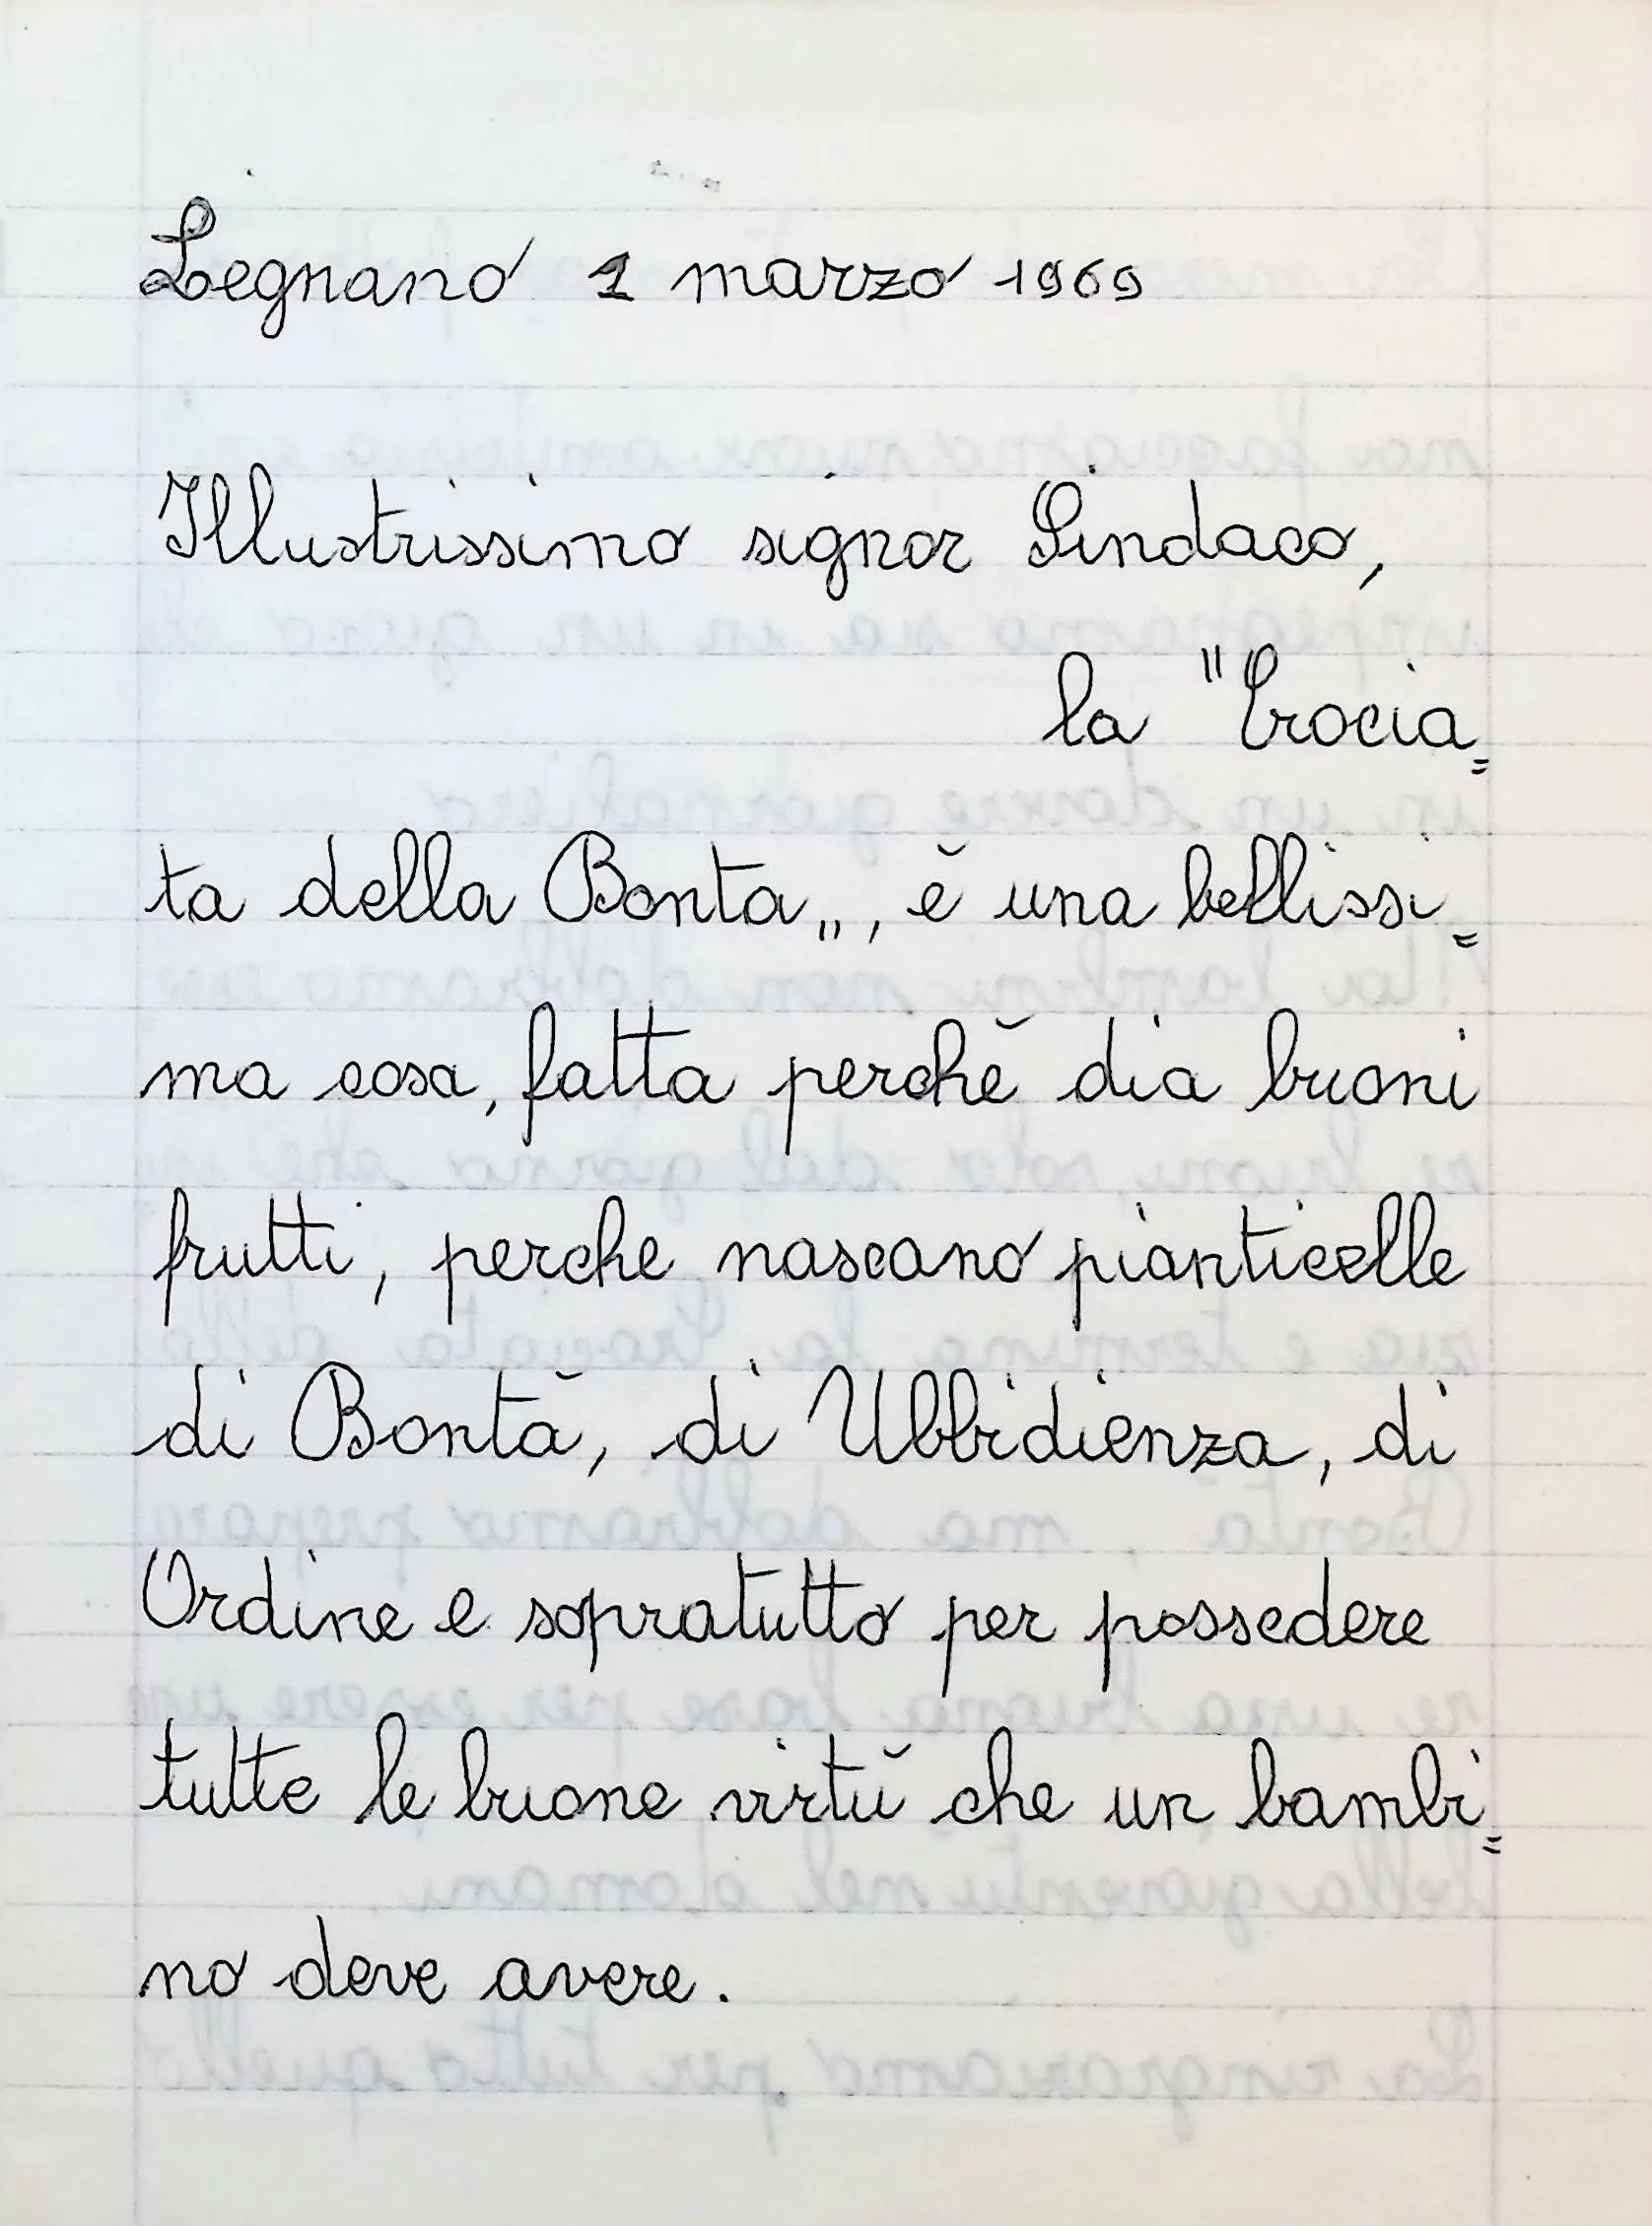 Legnano 1 marzo 1969
Illustrissimo signor Sindaco,
la "Crocia=
ta della Bonta„, è una bellissi=
ma cosa, fatta perchè dia buoni
frutti, perche nascano pianticelle
di Bontà, di Ubbidienza, di
Ordine e sopratutto per possedere
tutte le buone virtù che un bambi=
no deve avere.